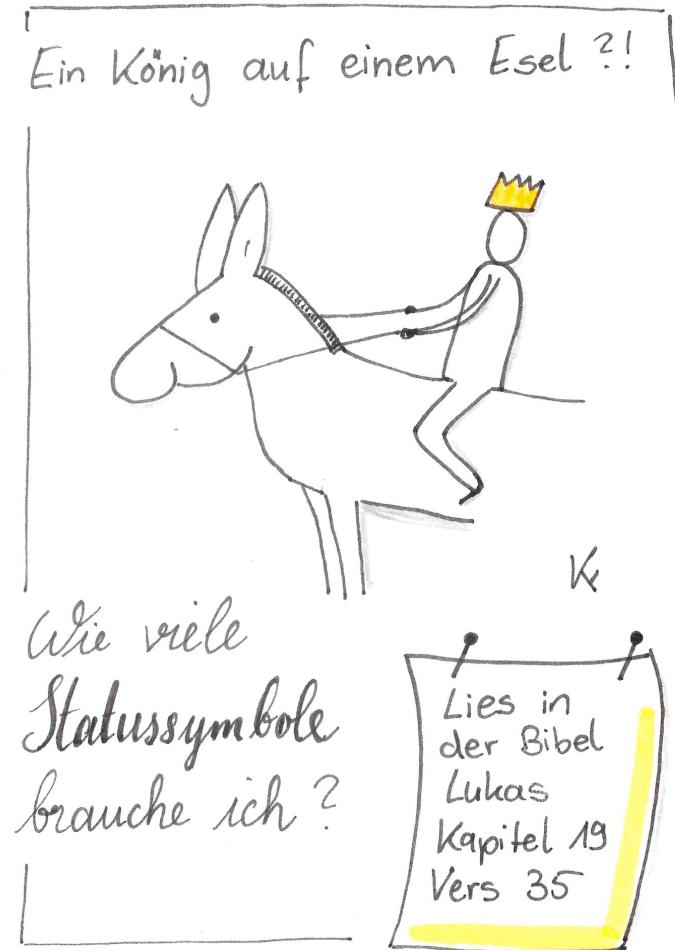 Ein König auf einem Esel ?!
Wie viele
Statussymbole
brauche ich ?
Lies in
der Bibel
Lukas
Kapitel 19
Vers 35